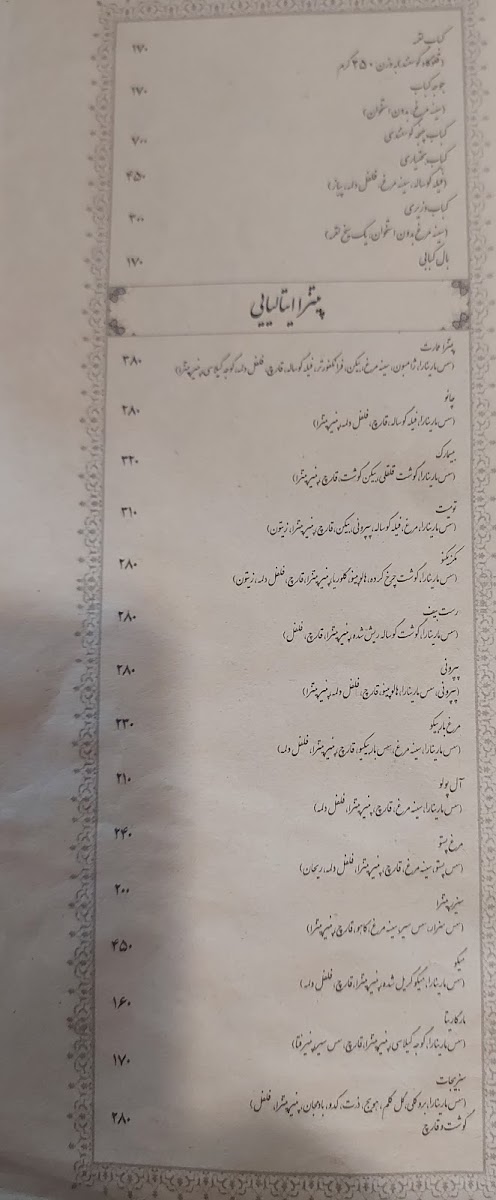 کباب لقمه ۲۷۰
(قلوه‌گاه گوسفند به وزن ۲۵۰ گرم)
جوجه کباب ۲۷۰
(سینه مرغ، بدون استخوان)
کباب پنجه گوسفندی ۷۰۰
کباب بختیاری
(فیله گوساله، سینه مرغ، فلفل دلمه، پیاز) ۴۵۰
کباب وزیری
(سینه مرغ بدون استخوان، یک سیخ لقمه) ۳۰۰
بال کبابی ۱۷۰
پیتزا ایتالیایی
پیتزا عمارت
(سس مارینارا، ژامبون، سینه مرغ، بیکن، فرانکفورتر، فیله گوساله، قارچ، فلفل دلمه، گوجه گیلاسی، پنیر پیتزا) ۳۸۰
چائو
(سس مارینارا، فیله گوساله، قارچ، فلفل دلمه، پنیر پیتزا) ۲۸۰
بیسمارک
(سس مارینارا، گوشت قلقلی، بیکن گوشت، قارچ، پنیر پیتزا) ۳۲۰
توییست
(سس مارینارا، مرغ، فیله گوساله، پپرونی، بیکن، قارچ، پنیر پیتزا، زیتون) ۳۱۰
مکزیکنو
(سس مارینارا، گوشت چرخ کرده، هالوپینو، کلوریا، پنیر پیتزا، قارچ، فلفل دلمه، زیتون) ۲۸۰
رست بیف
(سس مارینارا، گوشت گوساله ریش شده، پنیر پیتزا، قارچ، فلفل) ۲۸۰
پپرونی
(پپرونی، سس مارینارا، هالوپینو، قارچ، فلفل دلمه، پنیر پیتزا) ۲۸۰
مرغ باربیکو
(سس مارینارا، سینه مرغ، سس باربیکیو، قارچ، پنیر پیتزا، فلفل دلمه) ۲۳۰
آل پولو
(سس مارینارا، سینه مرغ، قارچ، پنیر پیتزا، فلفل دلمه) ۲۱۰
مرغ پستو
(سس پستو، سینه مرغ، قارچ، پنیر پیتزا، فلفل دلمه، ریحان) ۲۴۰
سزار پیتزا
(سس سزار، سس سیر، سینه مرغ، کاهو، قارچ، پنیر پیتزا) ۲۰۰
میگو
(سس مارینارا، میگو گریل شده، پنیر پیتزا، قارچ، فلفل دلمه) ۴۵۰
مارگاریتا
(سس مارینارا، گوجه گیلاسی، پنیر پیتزا، قارچ، سس سیر، پنیر فتا) ۱۶۰
سبزیجات
(سس مارینارا، بروکلی، گل کلم، هویج، ذرت، کدو، بادمجان، پنیر پیتزا، فلفل) ۱۷۰
گوشت و قارچ ۲۸۰